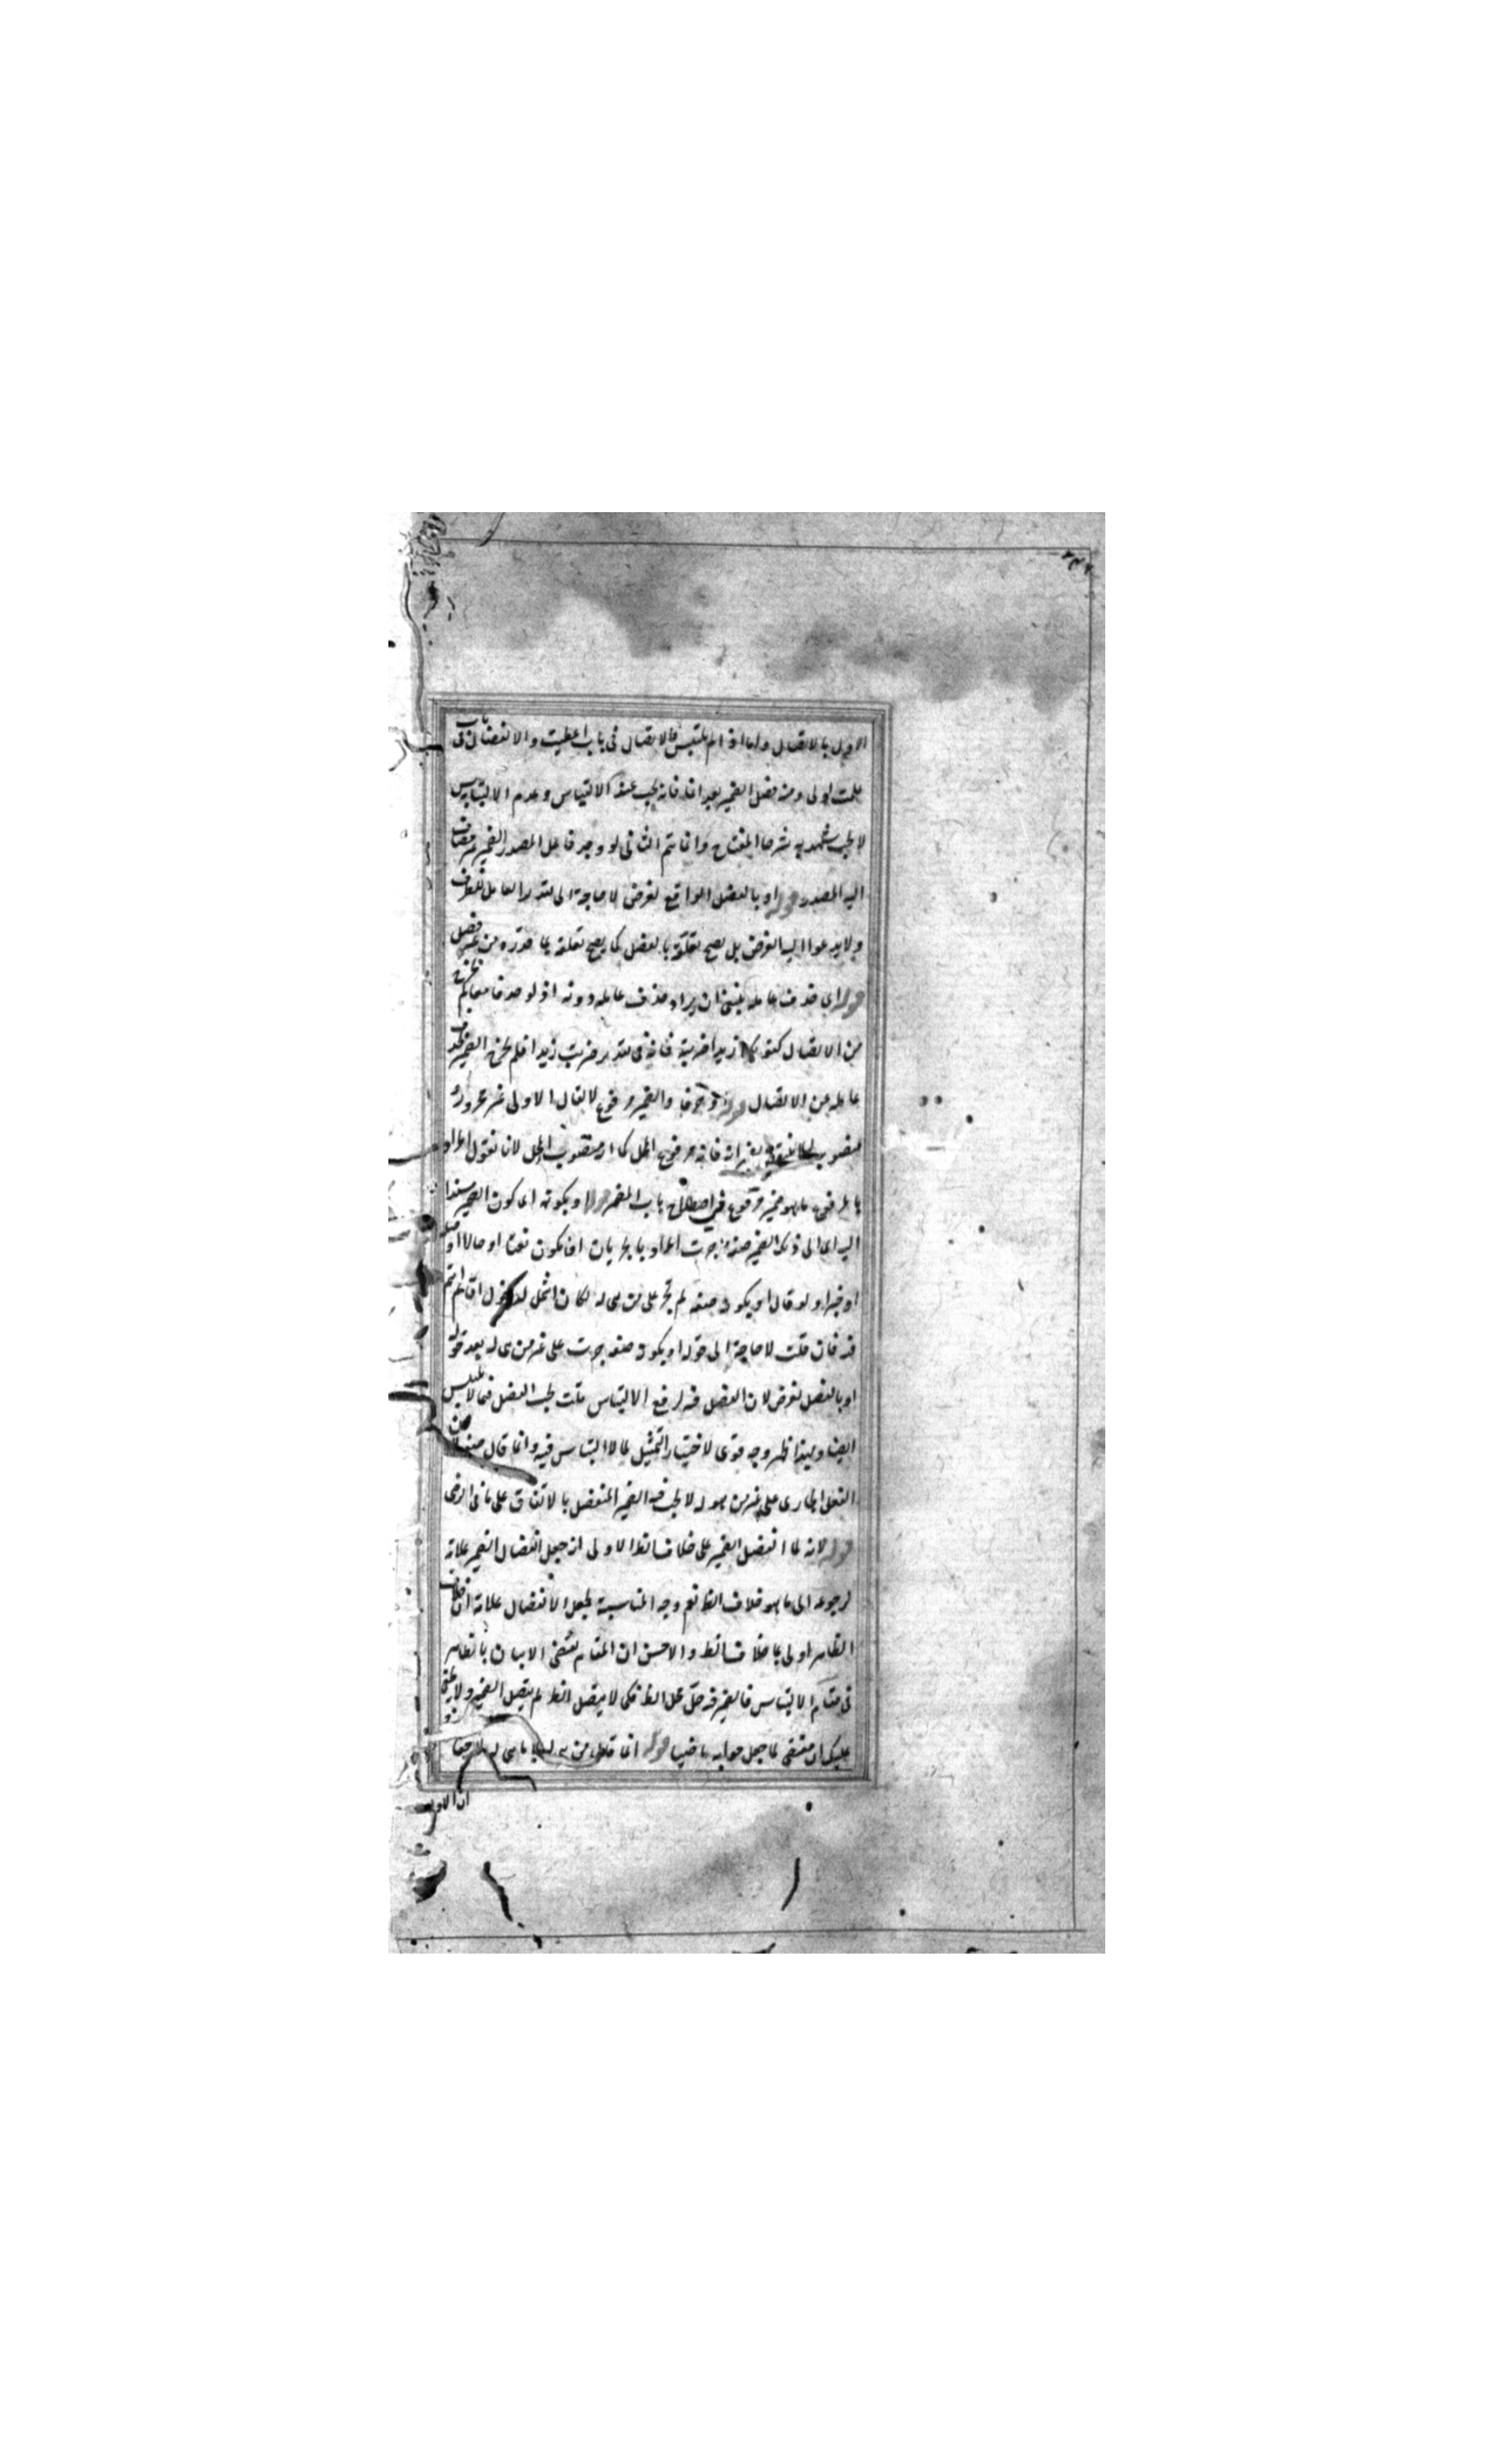 الاول بالاتصال واما اذا لم يلتبس فالاتصال فى باب اعطيت والانفصال فى باب
علمت اولى ومنه فصل الضمير بعد انما فانه يجب عند الالتباس وعدم الالتباس
لا يجب شهد به شرحا المفتاح وانما يتم الثانى لو وجد فاعل المصدر الضمير مضاف
اليه المصدر قوله او بالفصل الواقع لغرض لا حاجة الى تقدير العامل للظرف
ولا يدعوا اليه الغرض بل يصح تعلقه بالفصل كما يصح تعلقه بما قدره من غير فصل
قوله اى حذف عامله ينبغى ان يراد حذف عامله دونه اذ لو حذفا معا لم يخرج
من الاتصال كقولك ازيدا ضربته فانه فى تقدير ضربت زيدا فلم يخرج الضمير بحذف
عامله عن الاتصال قوله او حرفا والضمير مرفوع لا يقال الاولى غير مجرور او
منصوب فانه مرفوع المحل كما انه منصوب المحل لانا نقول المراد
بالمرفوع ما هو ضمير مرفوع فى اصطلاح باب المضمر قوله او بكونه اى كون الضمير مسندا
اليه اى الى ذلك الضمير صفة جرت المراد بالجريان ان يكون نعتا او حالا او صلة
او خبرا ولو قال او يكون صفة لم تجر على من هى له لكان اشمل
قد فان قلت لا حاجة الى قوله او بكون صفة جرت على غير من هى له بعد قوله
او بالفصل لغرض لان الفصل فيه لرفع الالتباس قلت يجب الفصل فيما لا يلتبس
ايضا وبهذا ظهر وجه قوى لاختيار التمثيل بما لا التباس فيه وانما قال صفة لان
الفعل الجارى على غير من هو له لا يجب فيه الضمير المنفصل بالاتفاق على ما فى الرضى
قوله لانه لما انفصل الضمير على خلاف الظ الاولى انه جعل انفصال الضمير علامة
لرجوعه الى ما هو خلاف الظ نعم وجه المناسبة لجعل الانفصال علامة ان خلاف
الظاهر اولى بما خلاف الظ والاحسن ان المقام يقتضى الاتيان بالظاهر
فى مقام الالتباس فالضمير قد حل محل الظ فكما لا يتصل الظ لم يتصل الضمير ولا يخفى
عليك ان مقتضى لما جعل جوابه ماضيا قوله انما قال من هى له
ان الاول